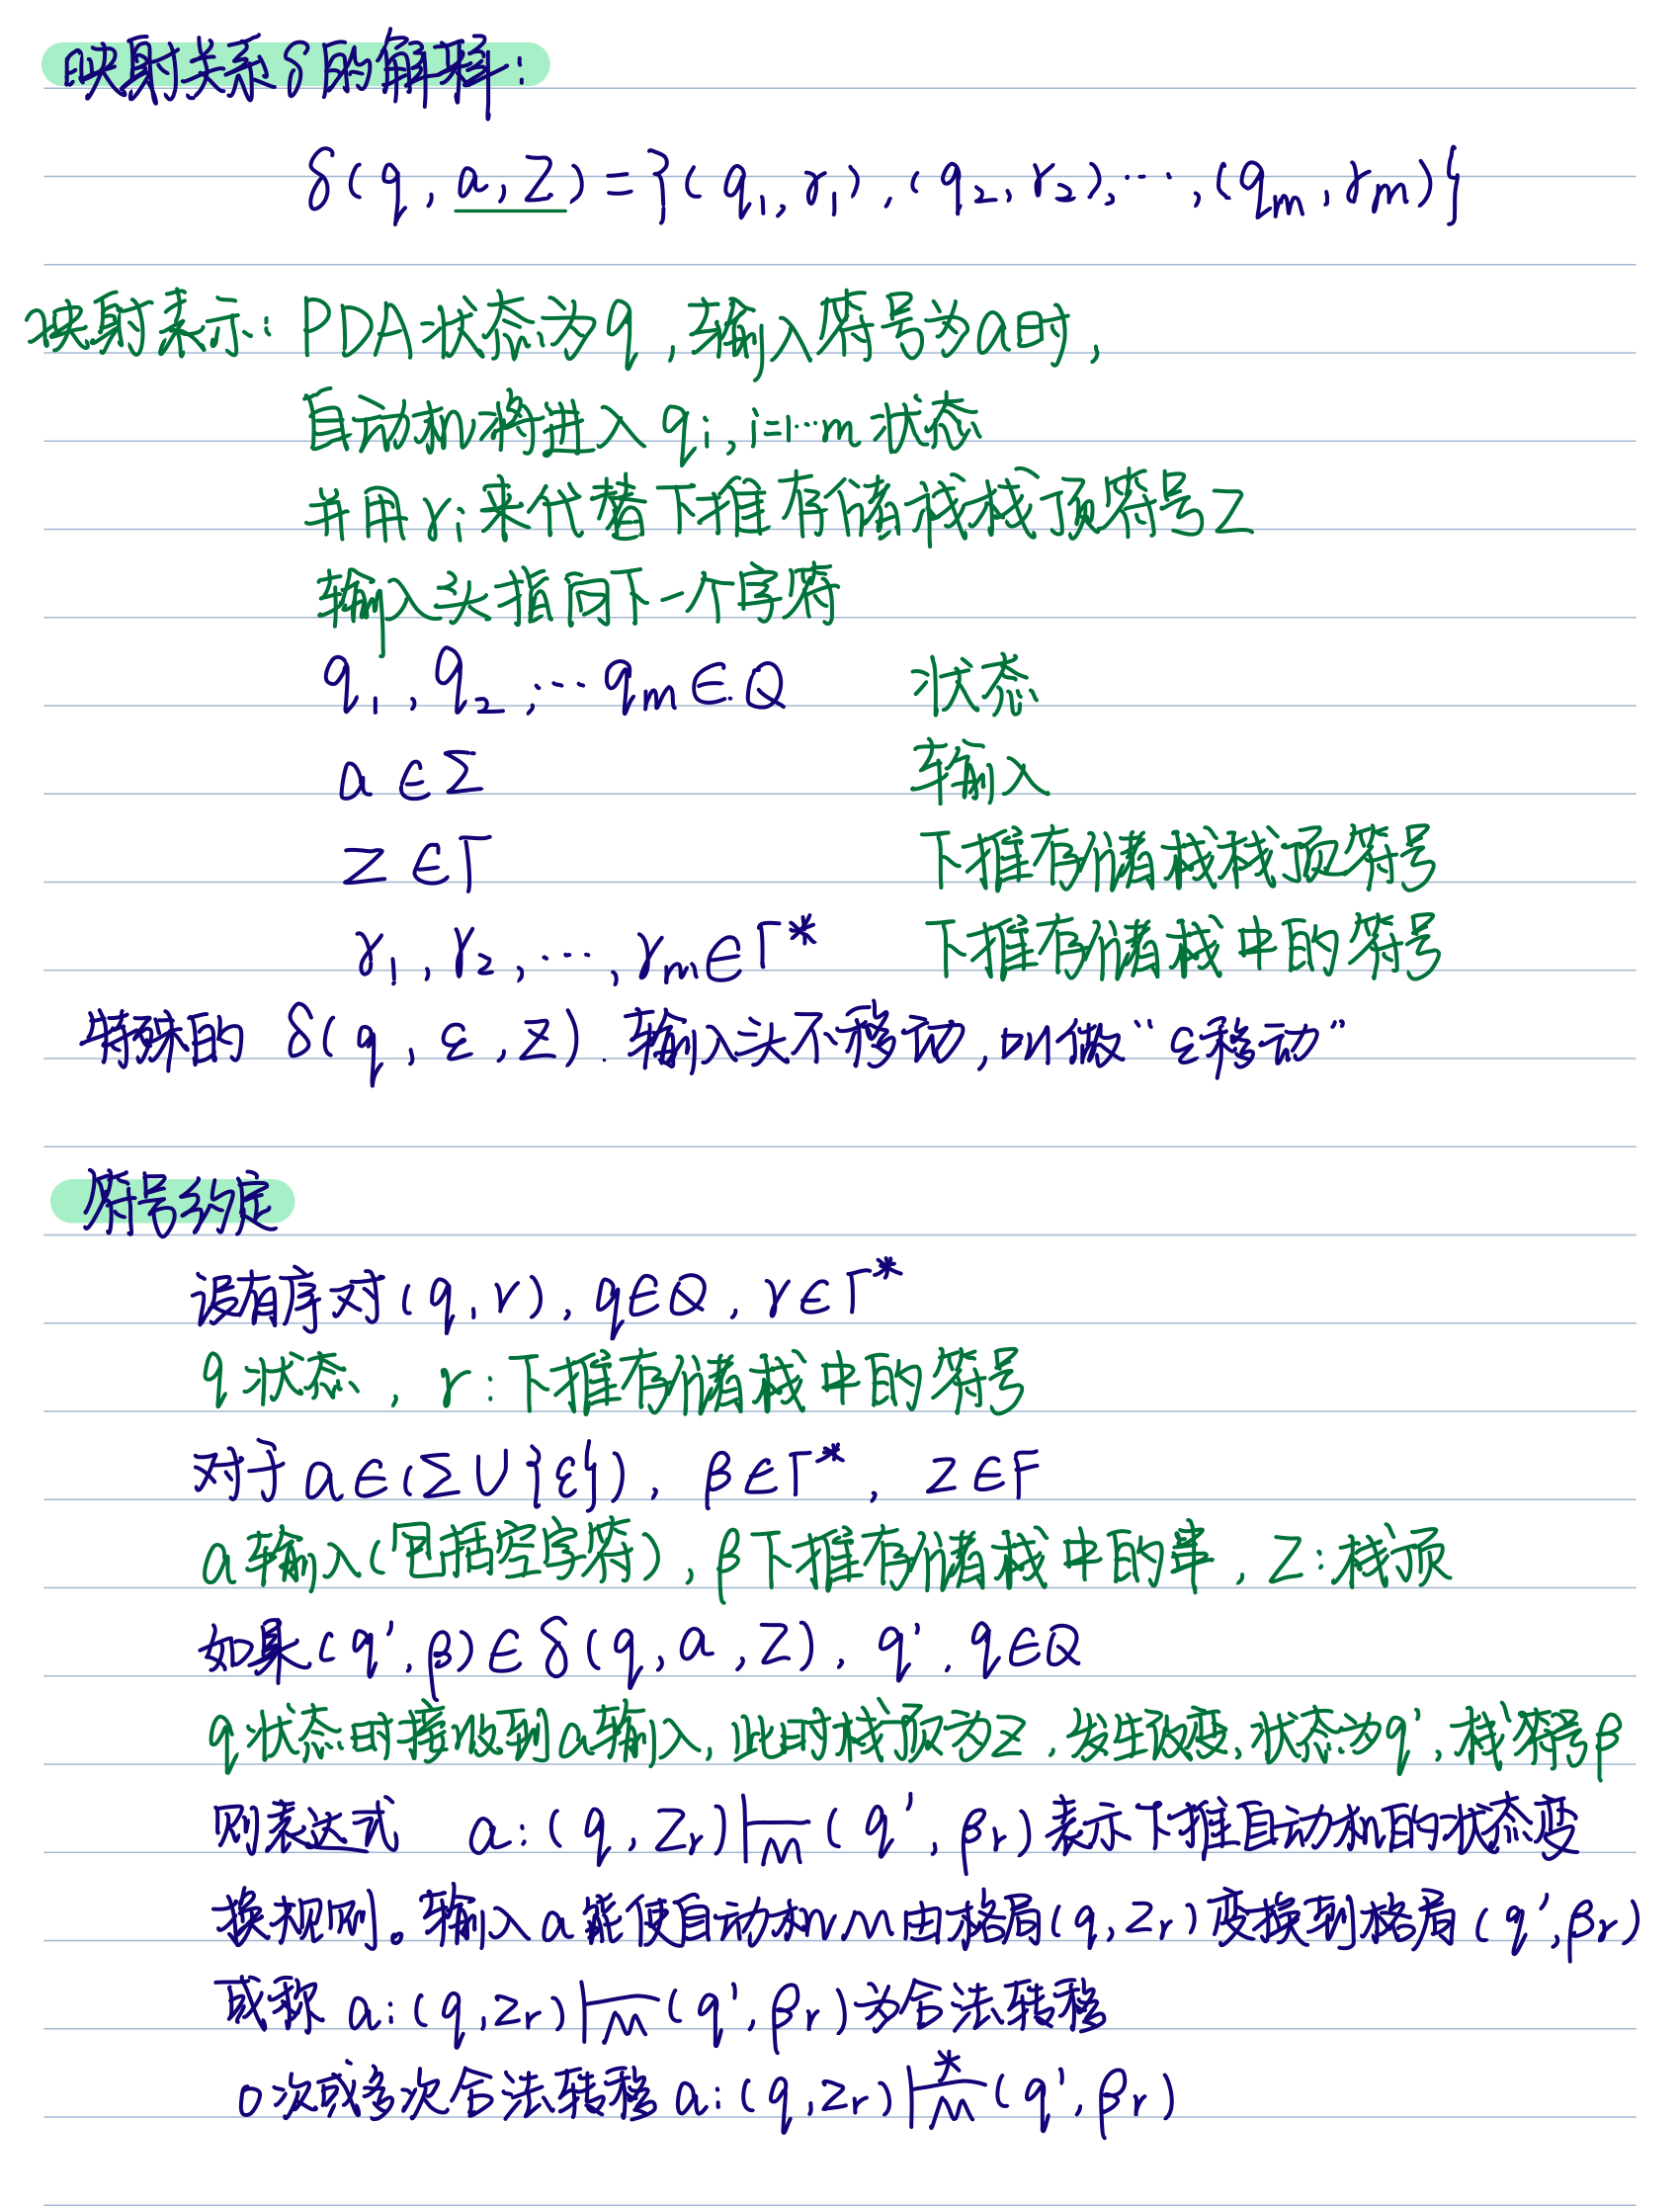 映射关系δ的解释:
δ(q, a, Z) = {(q₁, γ₁), (q₂, γ₂), ⋯, (qₘ, γₘ)}
映射表示: PDA状态为q, 输入符号为a时,
自动机将进入 qᵢ, i=1⋯m 状态
并用γᵢ来代替下推存储栈栈顶符号Z
输入头指向下一个字符
q₁, q₂, ⋯ qₘ ∈ Q 状态
a ∈ Σ 输入
Z ∈ Γ 下推存储栈栈顶符号
γ₁, γ₂, ⋯, γₘ ∈ Γ* 下推存储栈中的符号
特殊的 δ(q, ε, Z). 输入头不移动, 叫做“ε移动”
符号约定
设有序对(q, r), q∈Q, r∈Γ*
q状态, r:下推存储栈中的符号
对于a∈(Σ∪{ε}), β∈Γ*, Z∈F
a输入(包括空字符), β下推存储栈中的串, Z:栈顶
如果(q', β)∈δ(q, a, Z), q', q∈Q
q状态时接收到a输入, 此时栈顶为Z, 发生改变, 状态为q', 栈符号β
则表达式 a: (q, Zr) |—ₘ (q', βr) 表示下推自动机的状态变
换规则。输入a能使自动机M由格局(q, Zr)变换到格局(q', βr)
或称 a: (q, Zr) |—ₘ (q', βr)为合法转移
0次或多次合法转移 a: (q, Zr) |—*ₘ (q', βr)